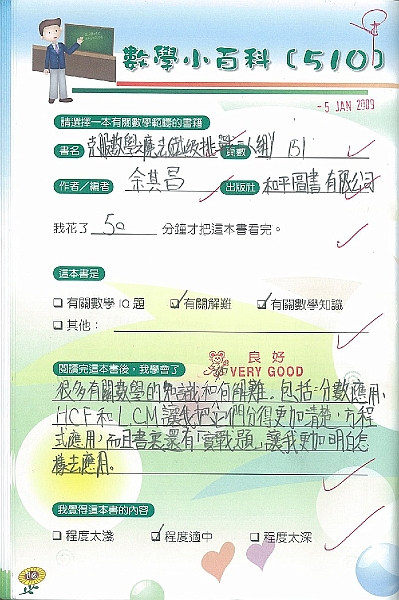 數學小百科(510)
-5 JAN 2009
請選擇一本有關數學範疇的書籍
書名 克服數學 頁數 151
作者／編者 余其昌 出版社 和平圖書有限公司
我花了 50 分鐘才把這本書看完。
這本書是
□ 有關數學IQ題 ☑ 有關解難 ☑ 有關數學知識
□ 其他：
閱讀完這本書後，我學會了
良好
VERY GOOD
很多有關數學的知識和 難。包括:分數應用、
HCF和LCM讓我把它們分得更加清楚,方程
式應用,而且書裏還有「實戰題」,讓我更加明白怎
樣去應用。
我覺得這本書的內容
□ 程度太淺 ☑ 程度適中 □ 程度太深